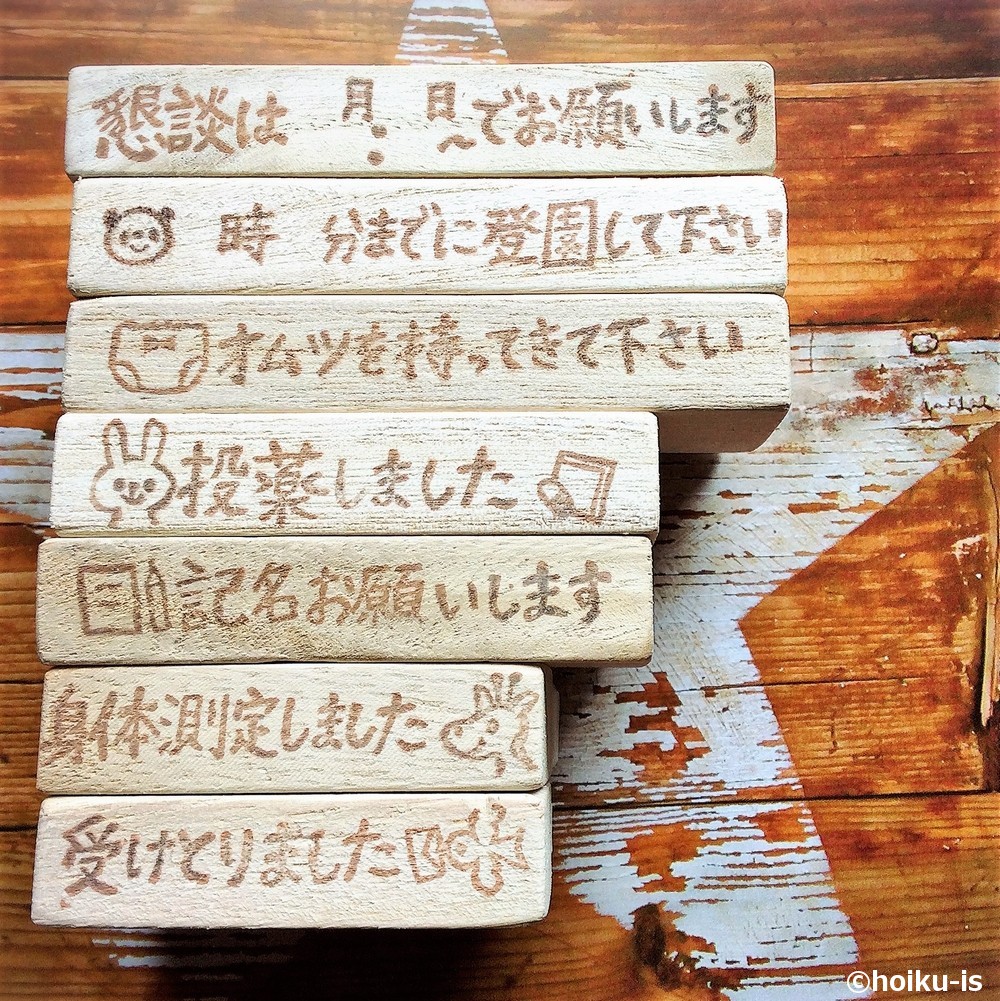 懇談は　月　日でお願いします
時　分までに登園して下さい
オムツを持ってきて下さい
投薬しました
記名お願いします
身体測定しました
受けとりました
©hoiku-is